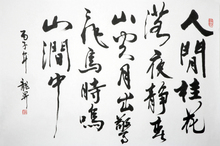 人閒桂花
落夜靜春
山空月出驚
飛鳥時鳴
山澗中
丙子年